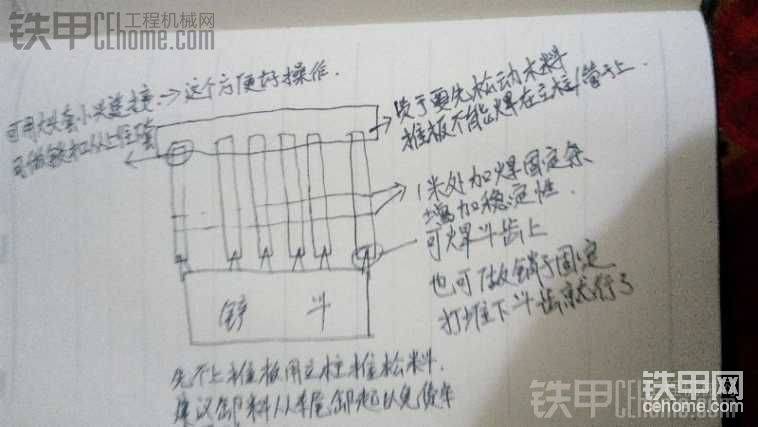 铁甲 工程机械网
CEhome.com
可用大头套小头连接.→这个方便好操作.
可做铁扣从上往
由于要先松动木料
推板不能焊在立柱/管子上.
1米处加焊固定条
增加稳定性.
可焊斗齿上
也可做销子固定
打进下斗齿就行了
铲 斗
先不上推板用立柱推松料.
建议卸料从车尾卸起以免
铁甲网
CEhome.com